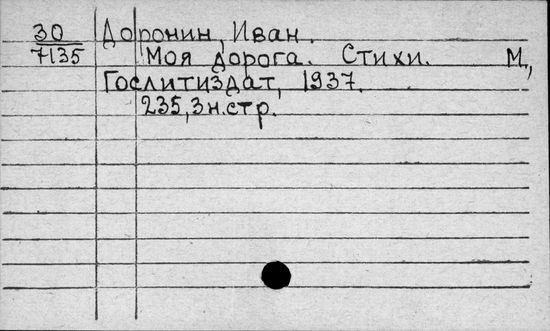 30 Доронин, Иван.
7135 Моя дорога. Стихи. М.,
Гослитиздат, 1937.
235, 3 н. стр.